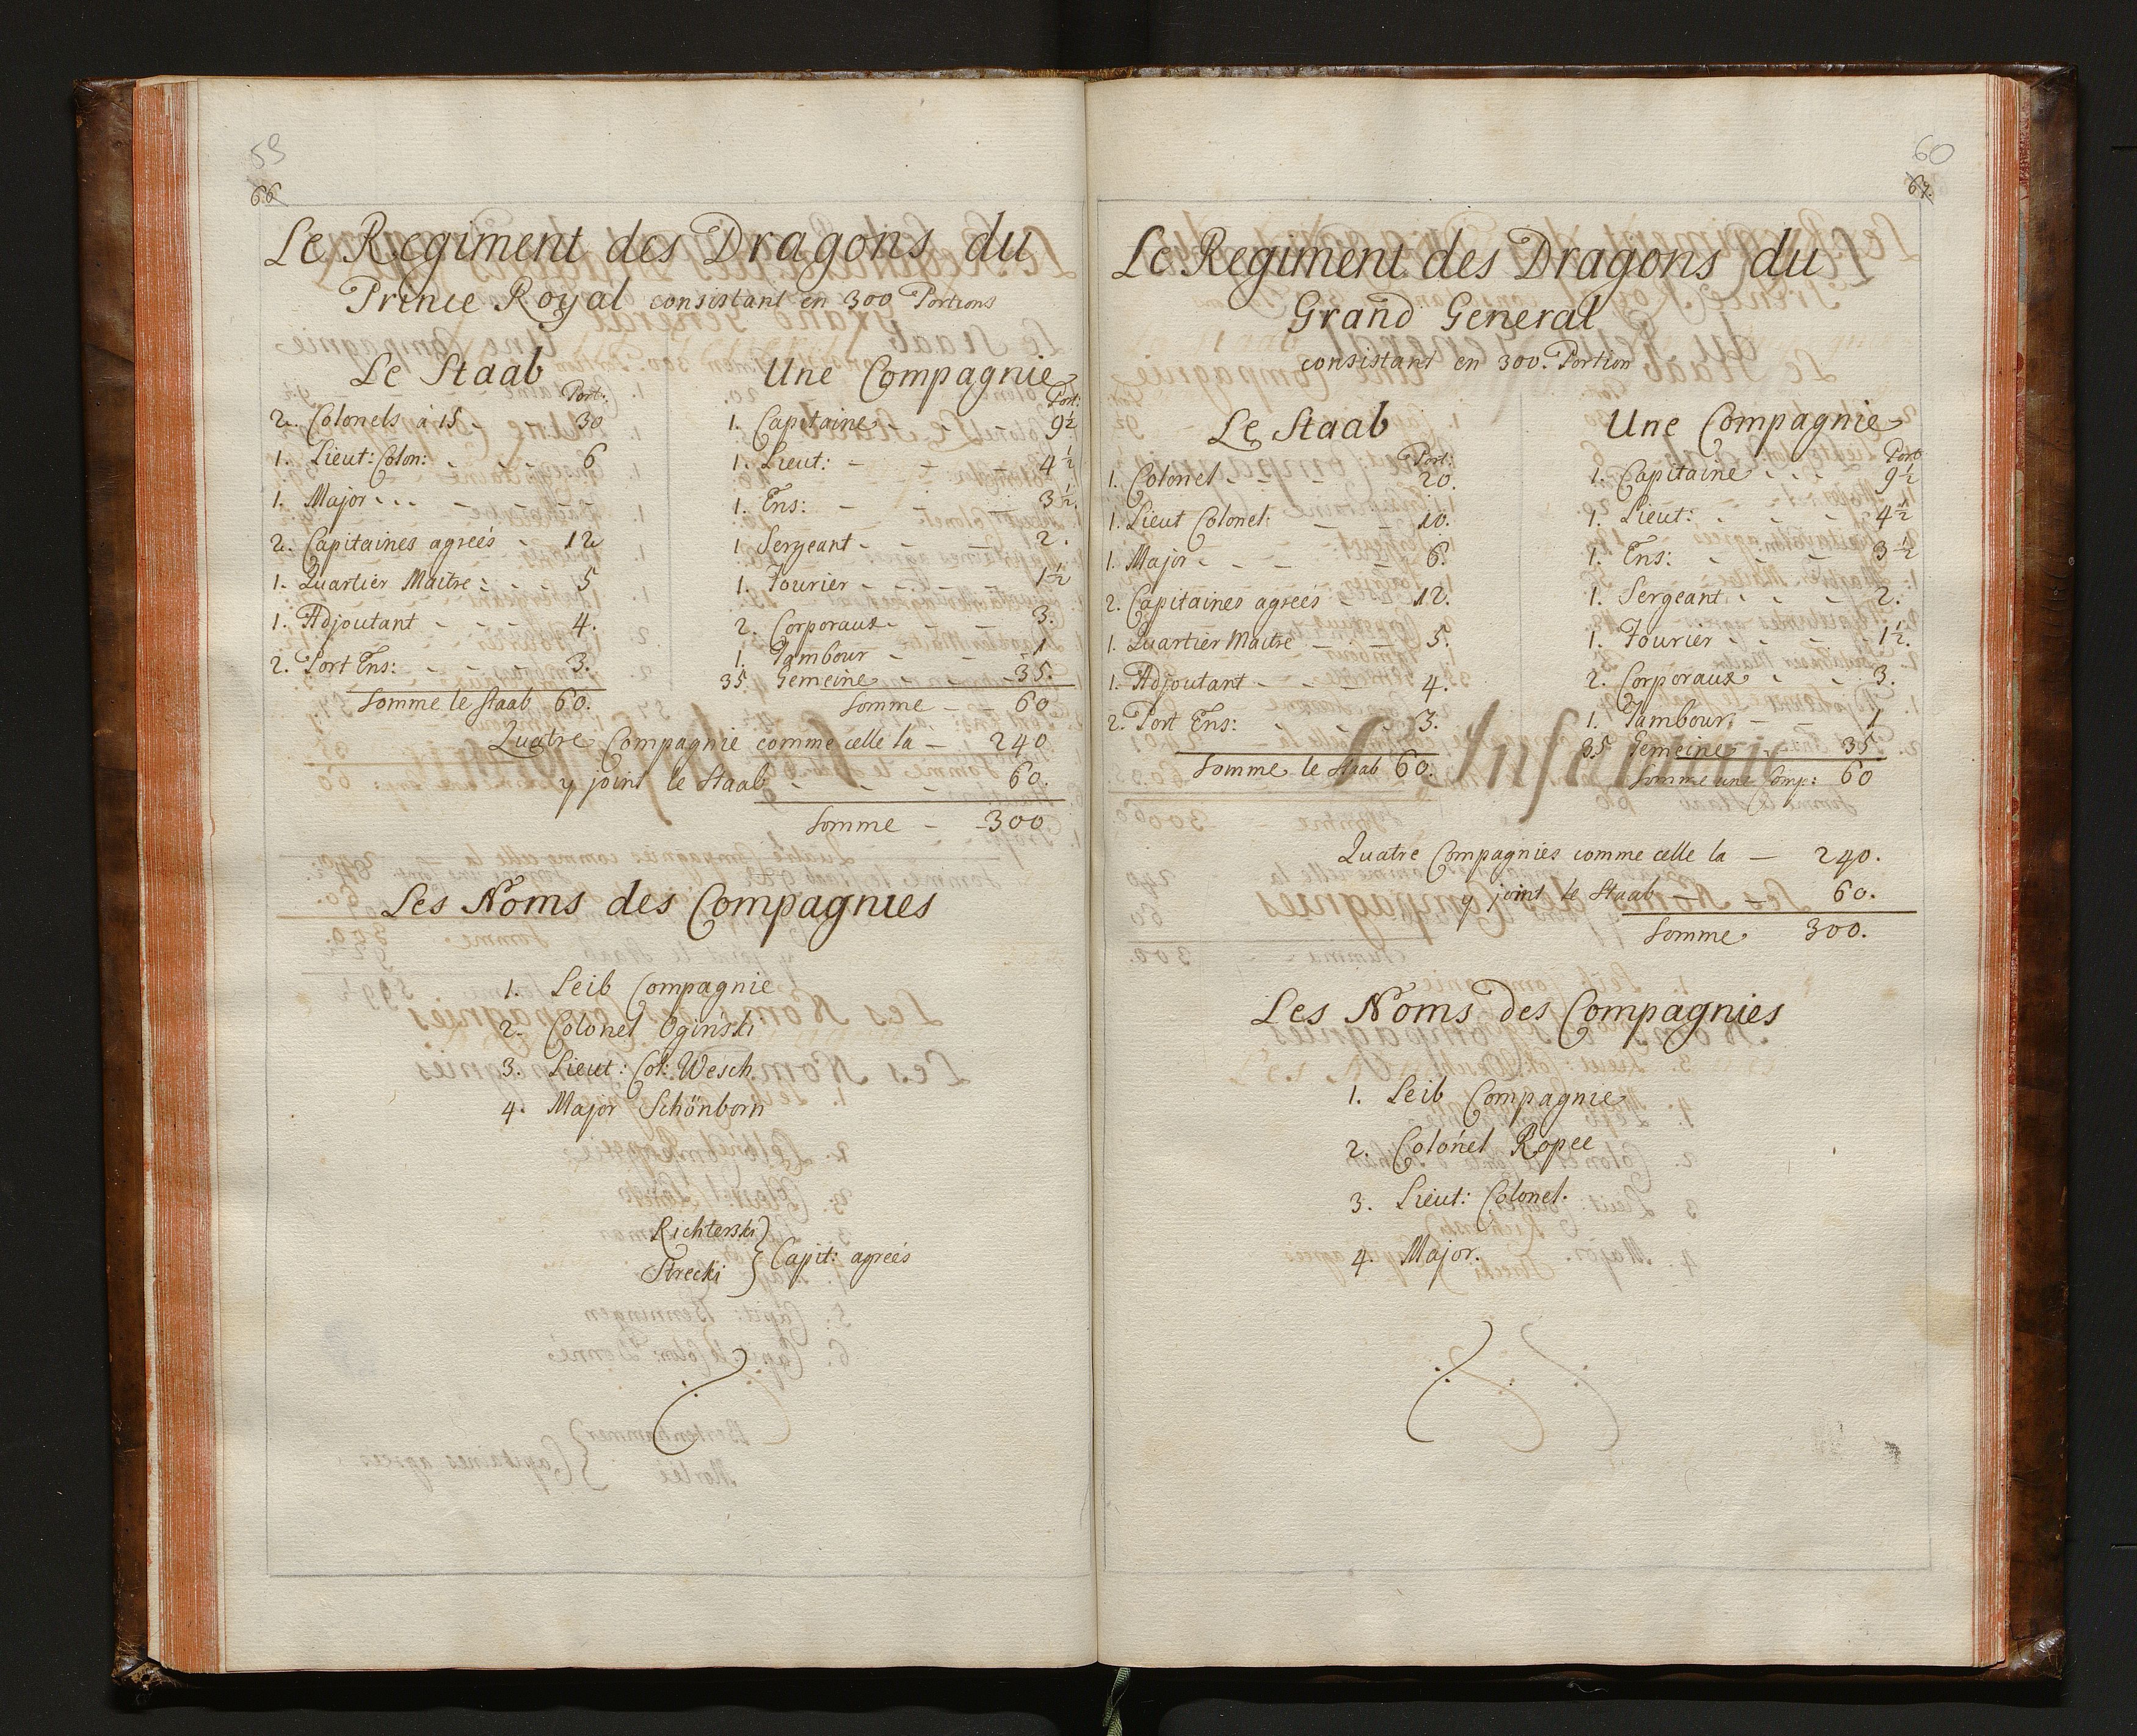 59
66
Le Regiment des Dragons du
Prince Royal consistant en 300 Portions
Le Staab
Port:
2. Colonels à 15 - 30
1. Lieut: Colon: - - - 6
1. Major - - - - - - -
2. Capitaines agreés - 12
1. Quartier Maitre - - - 5
1. Adjoutant - - - 4.
2. Port Ens: - - - 3.
Somme le Staab 60.
Une Compagnie
Port:
1. Capitaine - - - 9½
1. Lieut: - - - 4½
1. Ens: - - - 3½
1 Sergeant - - - 2.
1. Fourier - - - - 1½
2. Corporaux - - - 3.
1. Tambour - - - 1
35 Gemeine - - - 35.
Somme - - 60
Quatre Compagnie comme celle la - 240
y joint le Staab - - - 60.
Somme - - 300
Les Noms des Compagnies
1. Leib Compagnie
2. Colonel Ogiński
3. Lieut: Col: Wesch
4. Major Schönborn
Richterski
Strecki } Capit: agreés
60
67.
Le Regiment des Dragons du
Grand General
consistant en 300. Portion
Le Staab
Port:
1. Colonel - - - - 20.
1. Lieut Colonel: - - 10.
1. Major - - - - 6.
2. Capitaines agreés - - 12.
1. Quartier Maitre - - - 5.
1. Adjoutant - - - - 4.
2. Port Ens: - - - 3.
Somme le Staab 60.
Une Compagnie
Port
1. Capitaine - - - 9½
1. Lieut: - - - 4½
1. Ens: - - - 3½
1. Sergeant - - - 2.
1. Fourier - - - 1½.
2. Corporaux - - 3.
1. Tambour - - - 1
35 Gemeine - - 35
Somme une Comp: 60
Quatre Compagnies comme celle la - 240.
y joint le Staab - - 60.
Somme 300.
Les Noms des Compagnies
1. Leib Compagnie
2. Colonel Ropee
3. Lieut: Colonel.
4. Major.